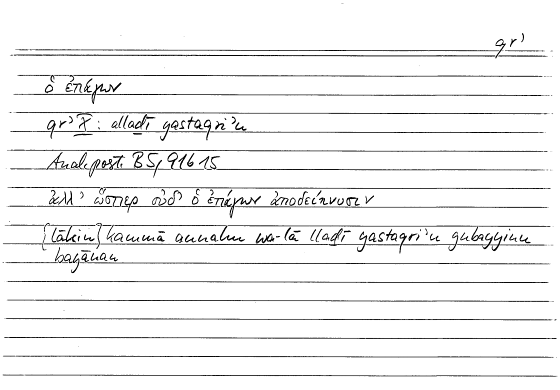 qrʾ
ὁ ἐπάγων
qrʾ X̅ : allaḏī yastaqriʾu
Anal. post. B 5, 91 b 15
ἀλλ’ ὥσπερ οὐδ’ ὁ ἐπάγων ἀποδείκνυσιν
{lākin} kammā annahu wa-lā llaḏī yastaqriʾu yubayyinu
bayānan